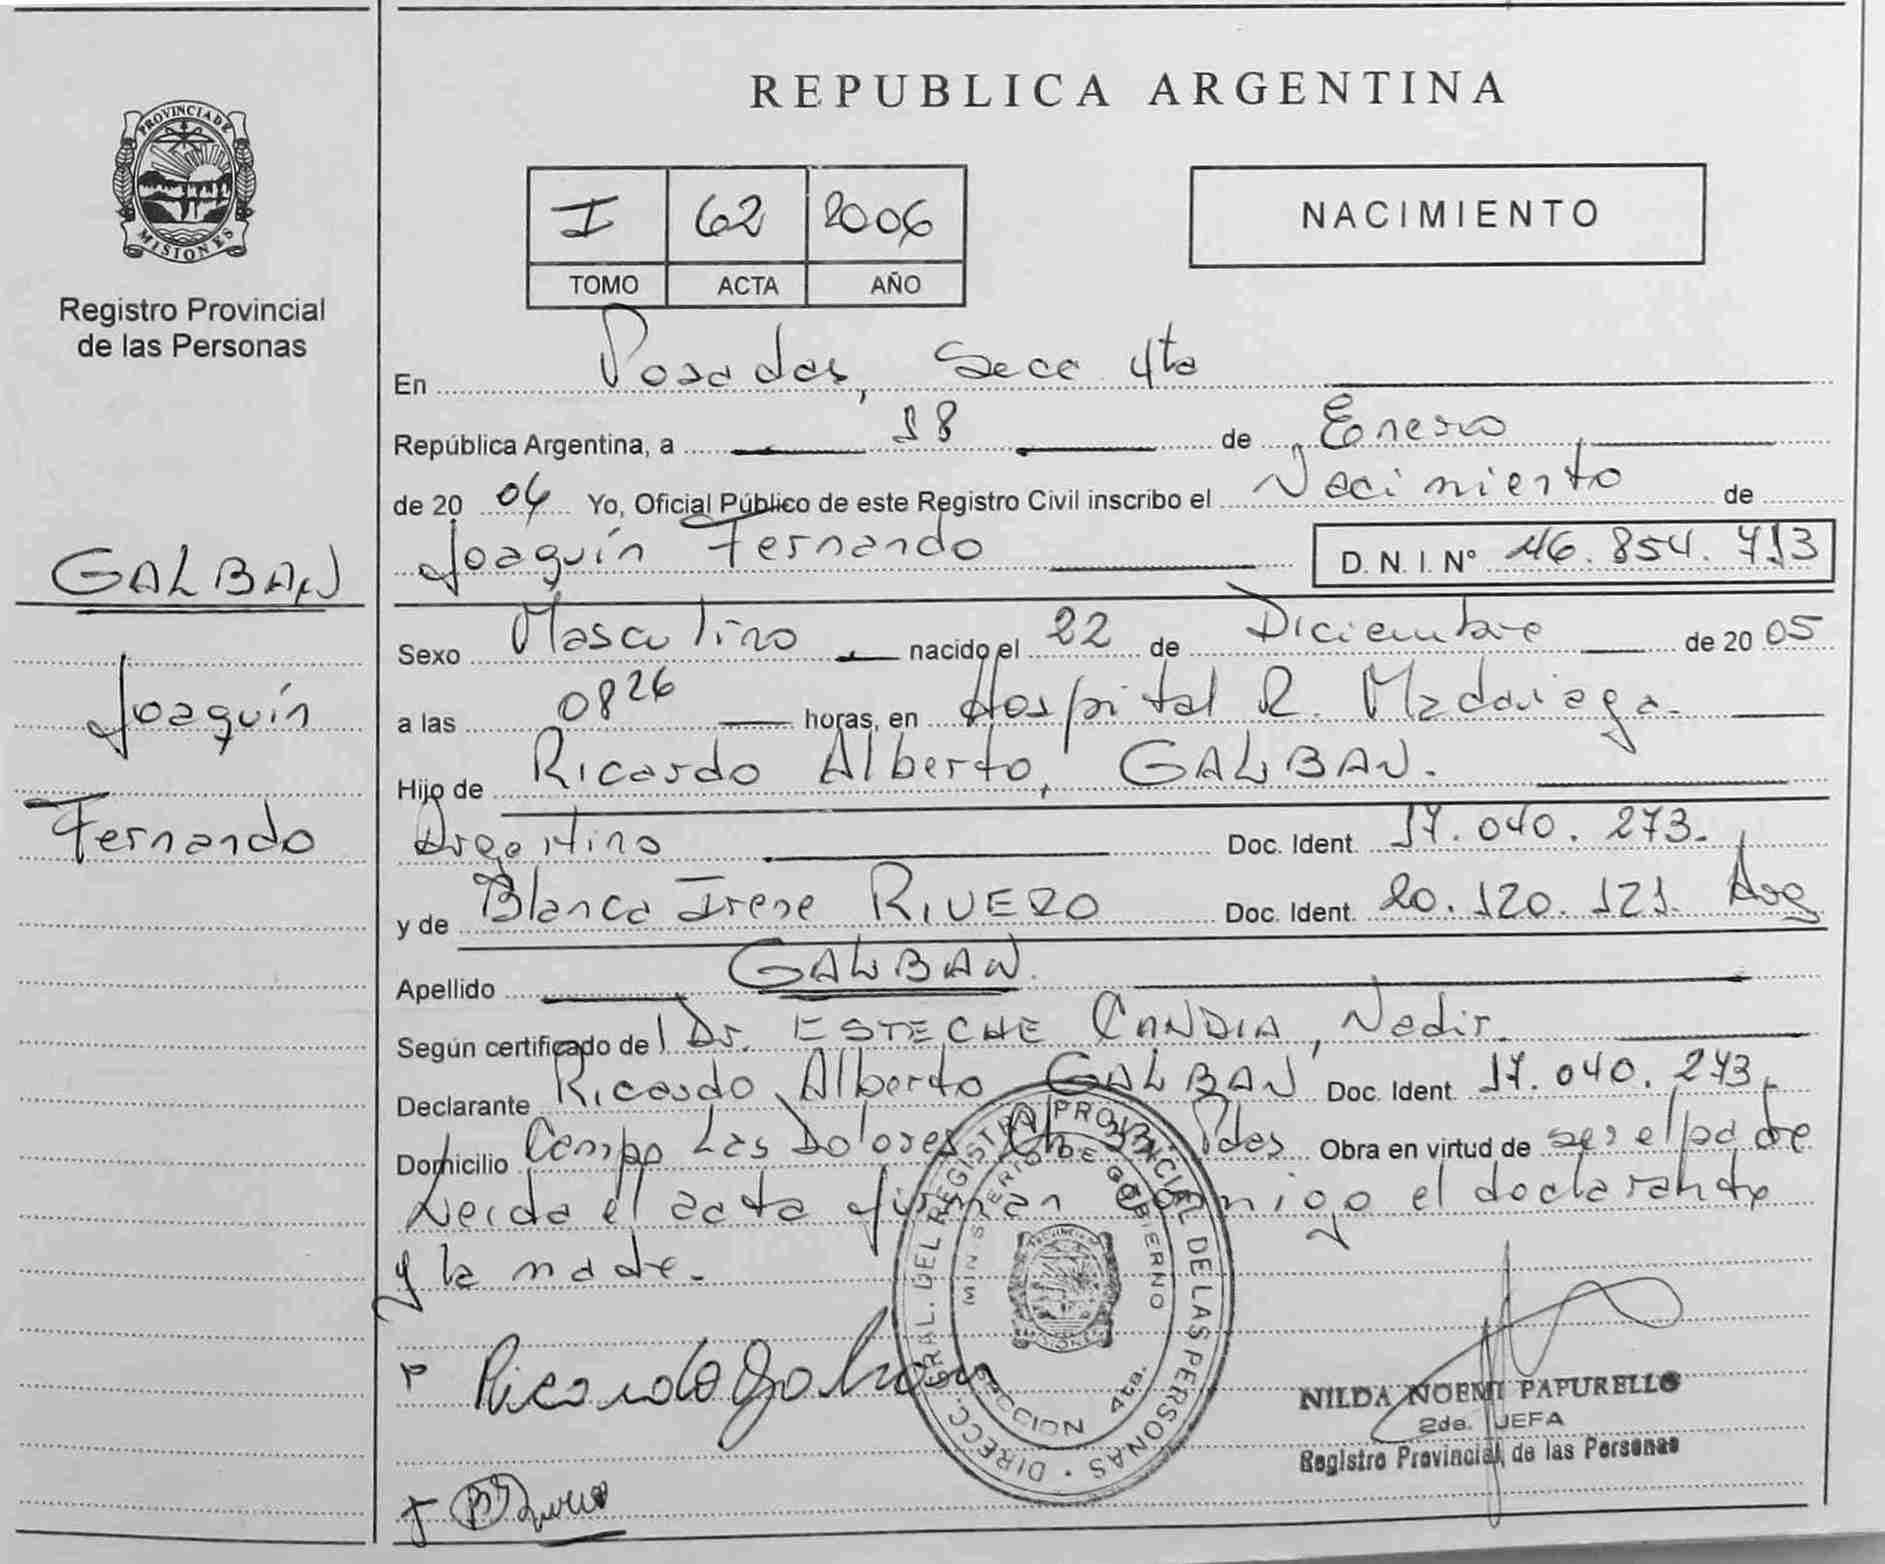 PROVINCIA DE
MISIONES
Registro Provincial
de las Personas
GALBAN
Joaquín
Fernando
REPUBLICA ARGENTINA
I 62 2006
TOMO ACTA AÑO
NACIMIENTO
En Posadas, Secc 4ta
República Argentina, a 18 de Enero
de 20 06 Yo, Oficial Público de este Registro Civil inscribo el Nacimiento de
Joaquín Fernando D. N. I. N° 46.854.713
Sexo Masculino nacido el 22 de Diciembre de 20 05
a las 08 26 horas, en Hospital R. Madariaga.
Hijo de Ricardo Alberto, GALBAN.
Argentino Doc. Ident. 17.040.273.
y de Blanca Irene RIVERO Doc. Ident. 20.120.121. Arg
Apellido GALBAN.
Según certificado del Dr. ESTECHE CANDIA, Nadir.
Declarante Ricardo Alberto GALBAN Doc. Ident. 17.040.273,
Domicilio Campo Las Dolores Ch 33 Pdas Obra en virtud de ser el padre
Leida el acta firman conmigo el declarante
y la madre.
Ricardo Galban
DIRECC. GRAL. DEL REGISTRO PROVINCIAL DE LAS PERSONAS
MINISTERIO DE GOBIERNO
SECCION 4ta.
NILDA NOEMI PAPURELLO
2da. JEFA
Registro Provincial de las Personas